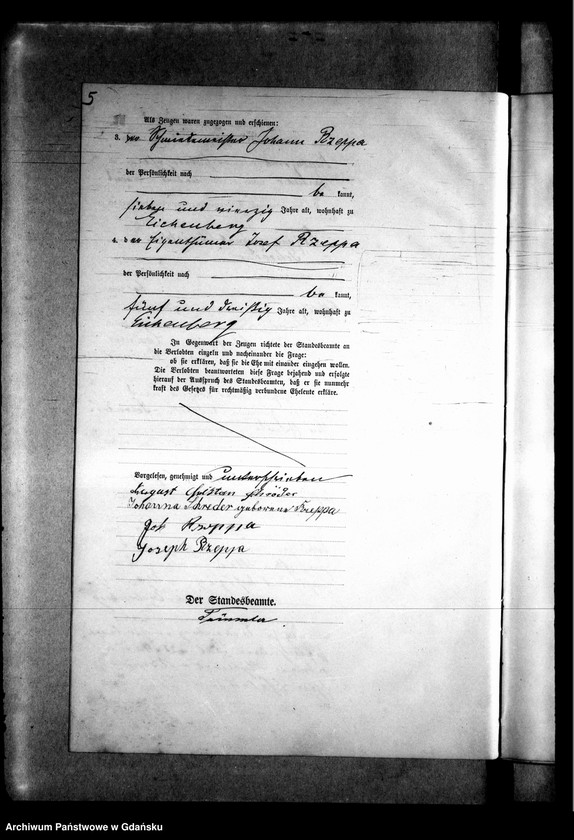 5
Als Zeugen waren zugezogen und erschienen:
3. der Schmiedemeister Johann Rzeppa
der Persönlichkeit nach
be kannt,
sieben und vierzig Jahre alt, wohnhaft zu
Eichenberg
4. der Eigenthümer Josef Rzeppa
der Persönlichkeit nach
be kannt,
fünf und dreißig Jahre alt, wohnhaft zu
Eichenberg
In Gegenwart der Zeugen richtete der Standesbeamte an
die Verlobten einzeln und nacheinander die Frage:
ob sie erklären, daß sie die Ehe mit einander eingehen wollen.
Die Verlobten beantworteten diese Frage bejahend und erfolgte
hierauf der Ausspruch des Standesbeamten, daß er sie nunmehr
kraft des Gesetzes für rechtmäßig verbundene Eheleute erkläre.
Vorgelesen, genehmigt und unterschrieben
August
Johanna geborene Rzeppa
Joh Rzeppa
Joseph Rzeppa
Der Standesbeamte.
Archiwum Państwowe w Gdańsku